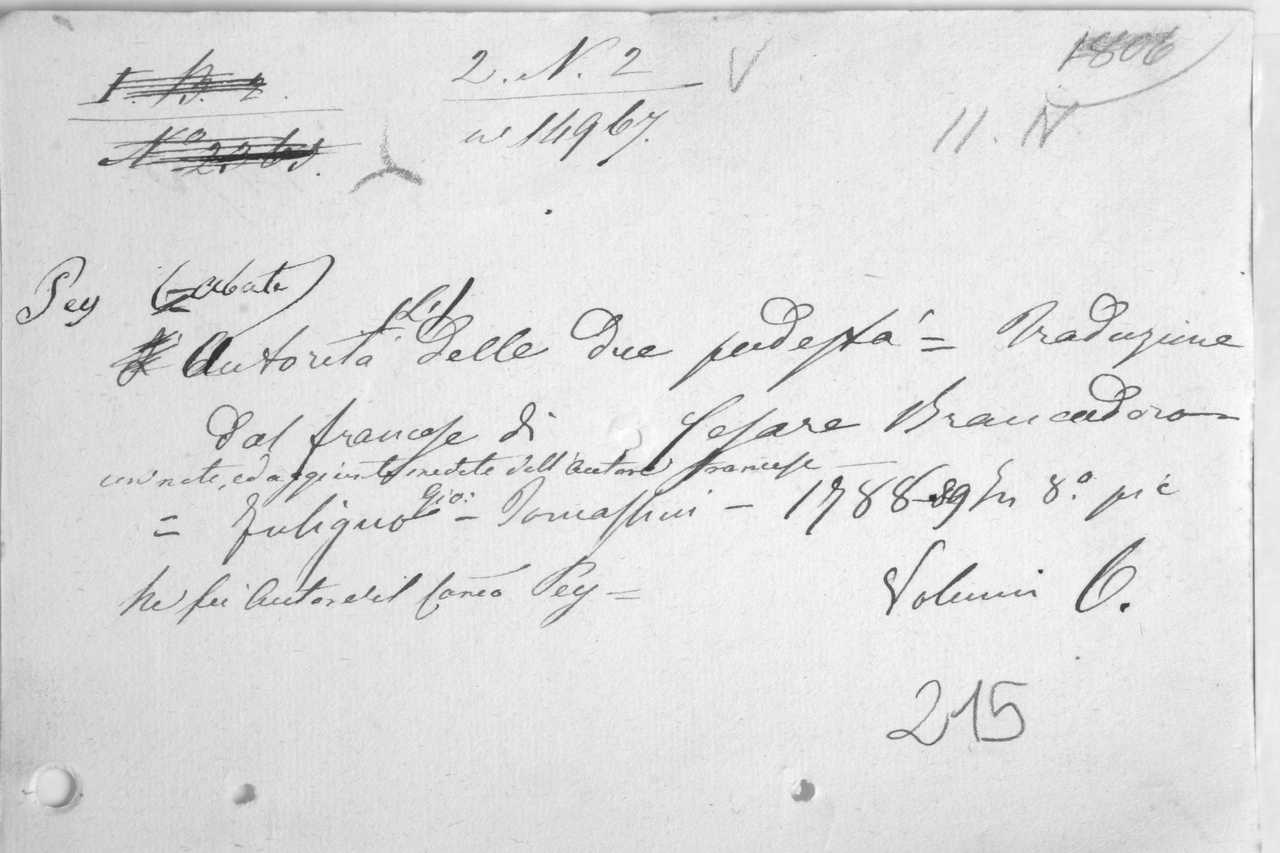 2. N. 2 V 1806
n 14967. 11. N
Pey (Abate)
(L')
Autorità delle due podestà = Traduzione
dal francese di Cesare Brancadoro
con note, ed aggiunte inedite dell'Autore francese
= Fuligno Gio: - Tomassini - 1788-89 In 8.º pic
Ne fu Autore il Canco Pey =
Volumi 6.
215